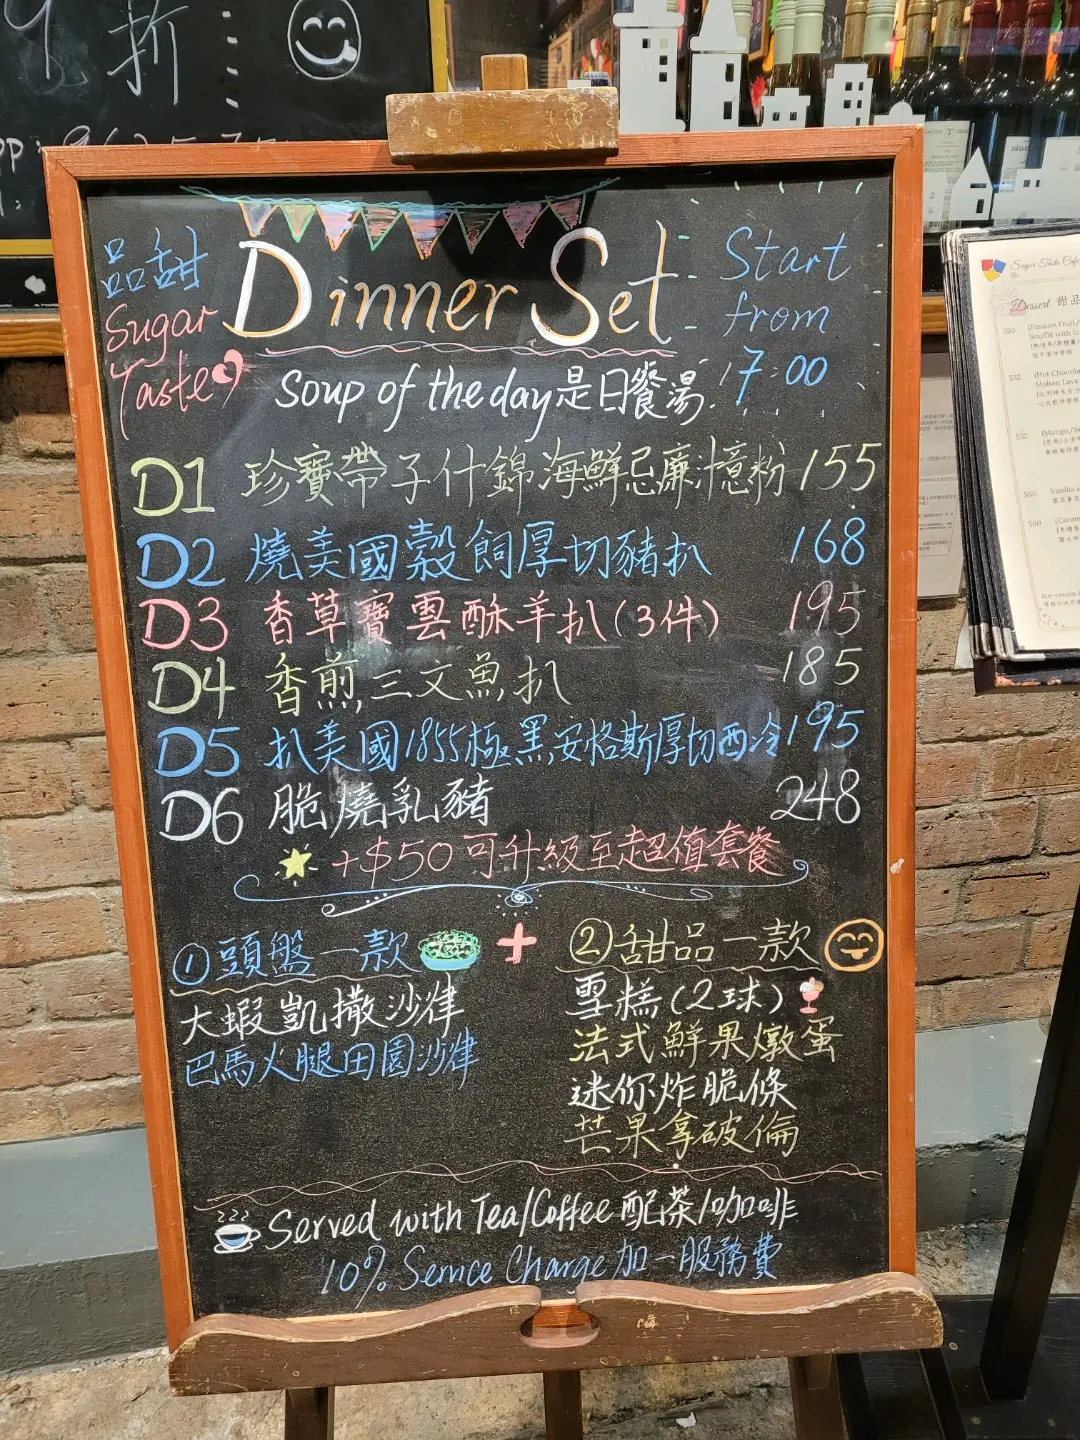 9折
品甜
Sugar
Taste
Dinner Set
Start
from
17:00
Soup of the day是日餐湯
D1 珍寶帶子什錦海鮮忌廉汁意粉 155
D2 燒美國穀飼厚切豬扒 168
D3 香草寶雲酥羊扒(3件) 195
D4 香煎三文魚扒 185
D5 扒美國1855極黑安格斯厚切西冷 195
D6 脆燒乳豬 248
+$50可升級至超值套餐
①頭盤一款 + ②甜品一款
大蝦凱撒沙律
巴馬火腿田園沙律
雪糕(2球)
法式鮮果燉蛋
迷你炸脆條
芒果拿破倫
Served with Tea/Coffee 配茶/咖啡
10% Service Charge 加一服務費
Sugar Taste Cafe
Dessert 甜品
$50
$52
$52
$60
$60